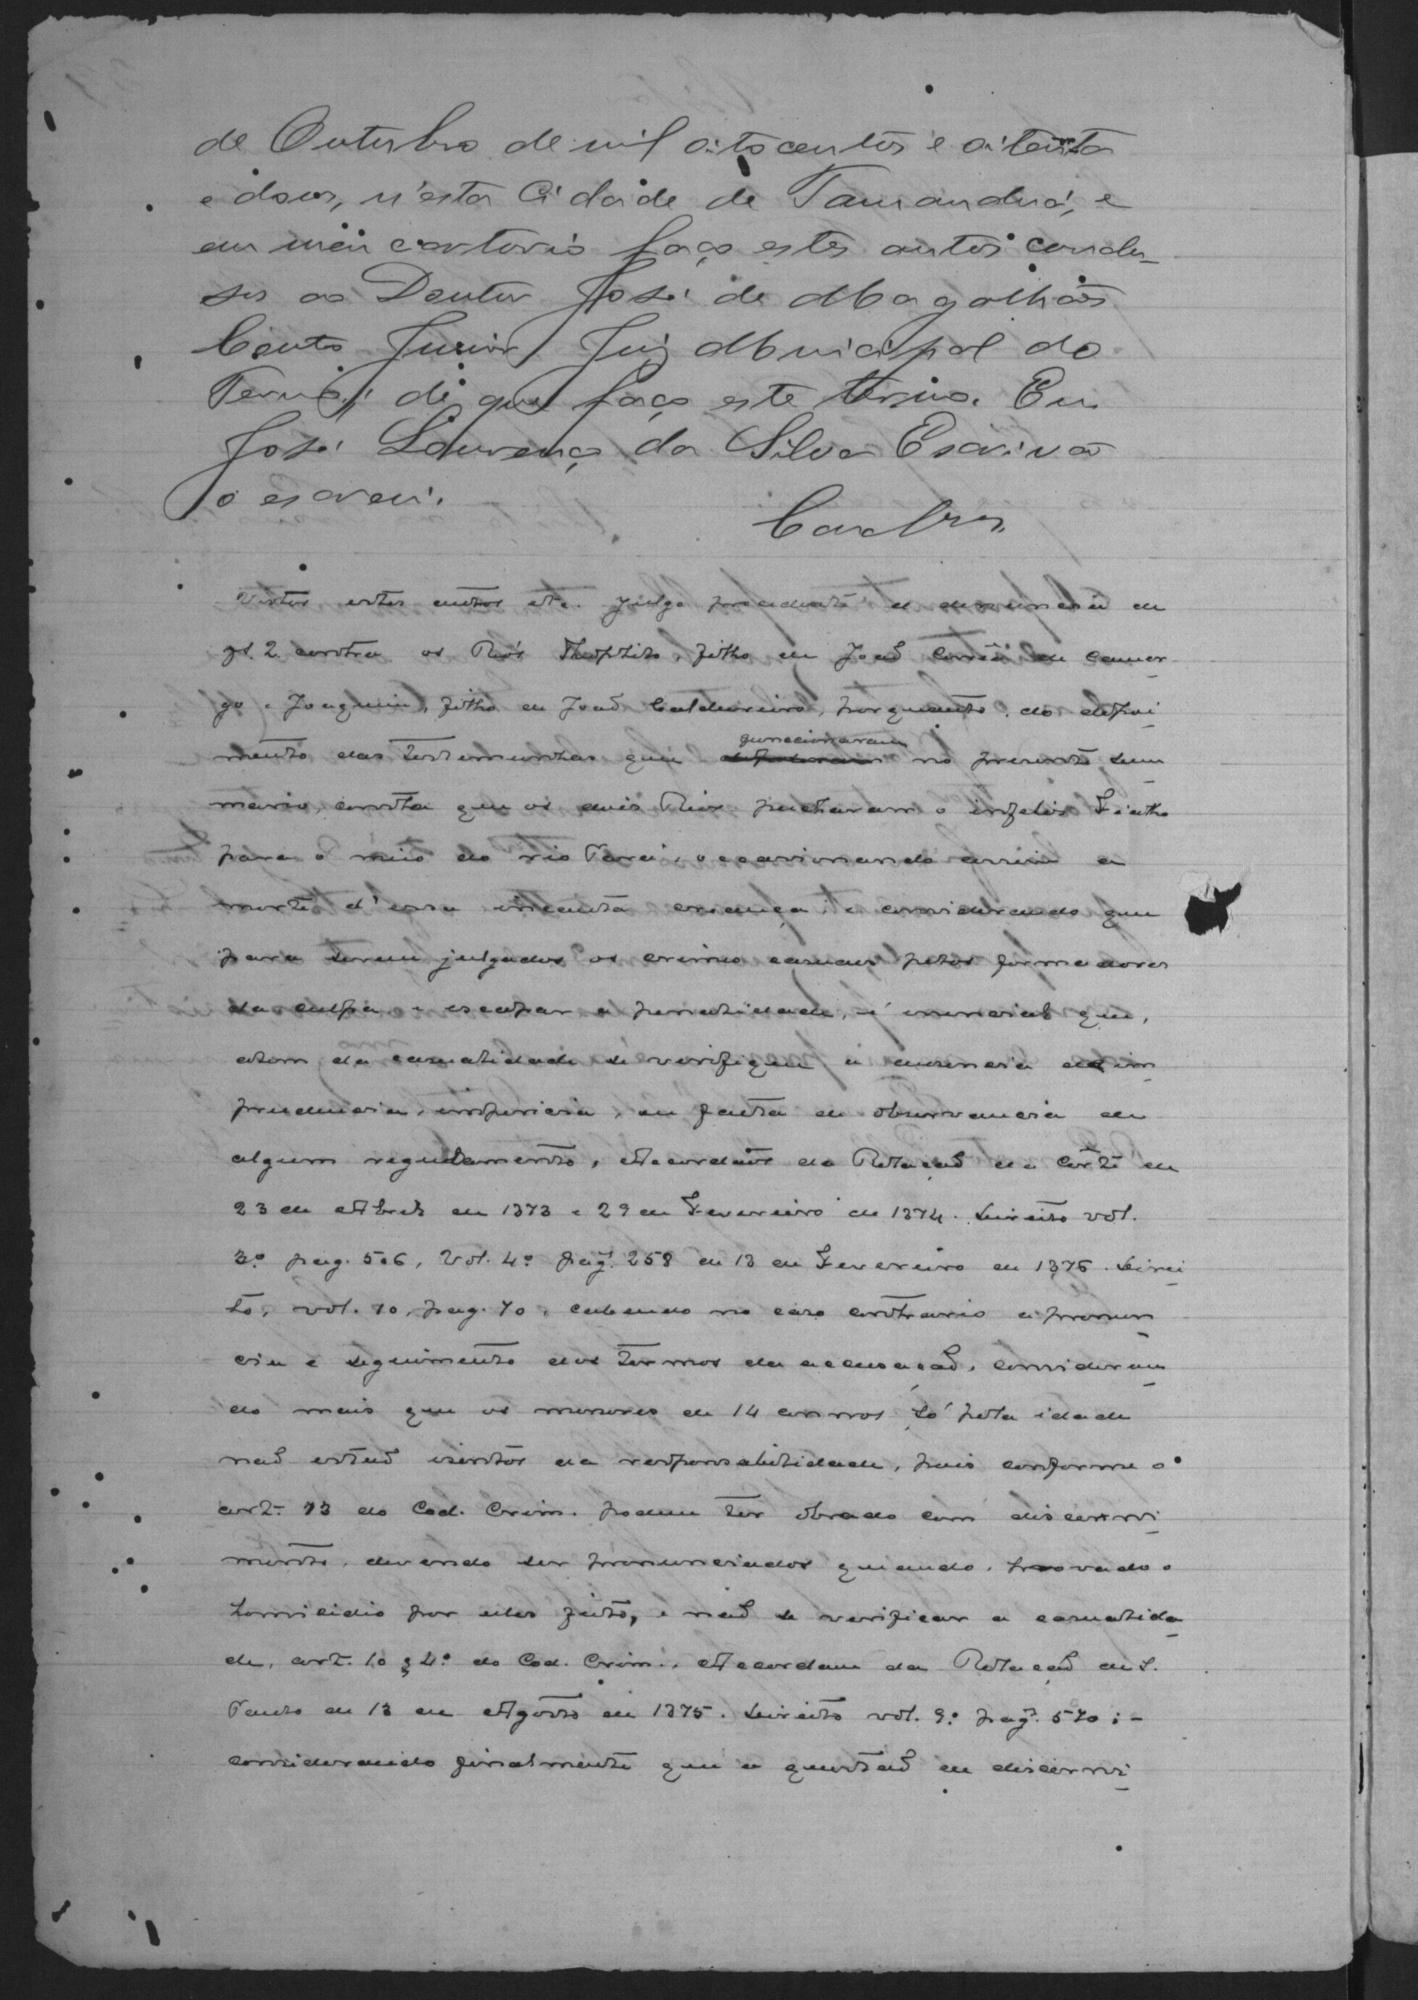 de Outubro de mil oitocentos e oitenta
e dous, n'esta Cidade de Tamanduá, e
em meu cartorio faço estes autos conclu-
sos ao Doutor José de Magalhães
Couto Junior Juiz Municipal do
Termo; de que faço este termo. Eu
José Lourenço da Silva Escrivão
o escrevi.
Conclusos
Vistos estes autos etc. Julgo procedente a denuncia de
fs. 2 contra os Réos Theophilo, filho de João Corrêa de Camar-
go e Joaquim, filho de João Caldeireiro, porquanto, do depoi-
mento das testemunhas que funccionaram no presente sum-
mario, consta que os dois Réos pucharam o infeliz Fialho
para o meio do rio Pará, occasionando assim a
morte d'essa incauta creança; e considerando que
para serem julgados os crimes casuaes pelos formadores
da culpa e escapar a penalidade, é essencial que,
alem da casualidade se verifique a ausencia de im-
prudencia, impericia, ou falta de observancia de
algum regulamento, Accordãos da Relação da Côrte de
23 de Abril de 1873 e 29 de Fevereiro de 1874. Direito vol.
3º pag. 506, Vol. 4º pag. 258 de 13 de Fevereiro de 1876. Direi-
to, vol. 10, pag. 70, cabendo no caso contrario a pronun-
cia e seguimento dos termos da accusação, consideran-
do mais que os menores de 14 annos só pela idade
não estão isentos da responsabilidade, pois conforme o
art. 13 do Cod. Crim. podem ter obrado com discerni-
mento, devendo ser pronunciados quando, provado o
homicidio por elles feito, e não se verificar a casualida-
de, art. 10 § 4º do Cod. Crim., Accordam da Relação de S.
Paulo de 13 de Agosto de 1875. Direito vol. 9º pag. 570; -
considerando finalmente que a questão de discerni-